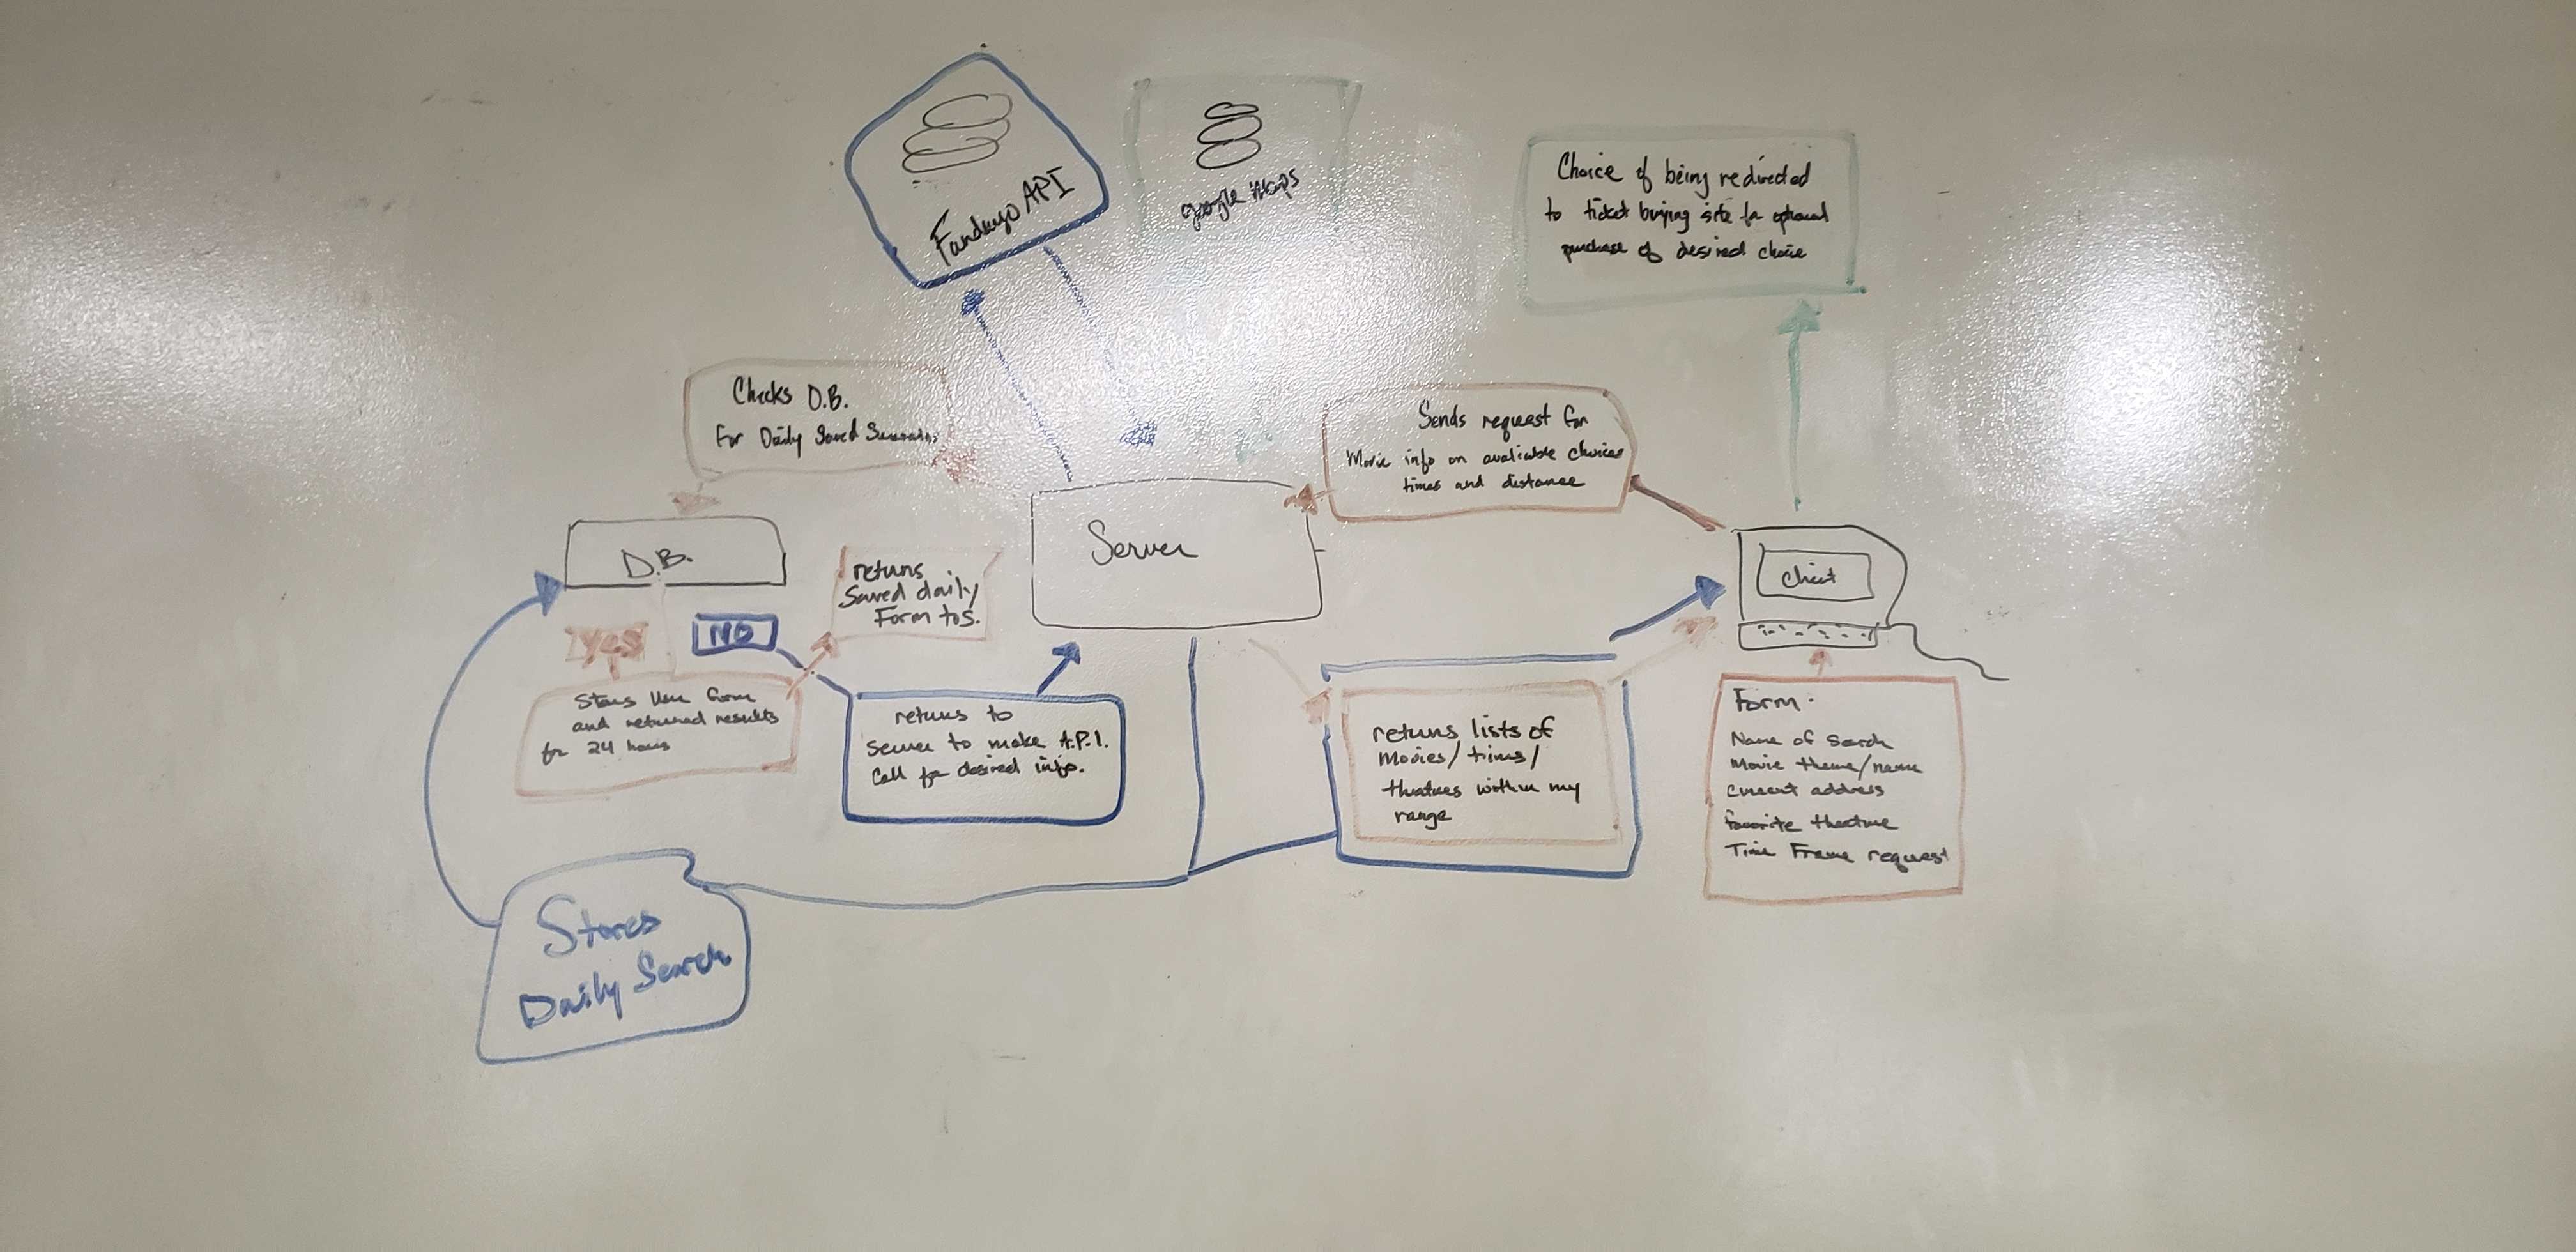 Fandago API
google Maps
Choice of being redirected
to ticket buying site for optional
purchase of desired choice
Checks D.B.
For Daily Saved
Sends request for
Movie info on avaliable choices
times and distance
Server
D.B.
returns
Saved daily
Form to S.
Client
Yes
NO
Stores User form
and returned results
for 24 hours
returns to
server to make A.P.I.
Call for desired info.
returns lists of
Movies/times/
theatres within my
range
Form:
Name of Search
Movie theme/name
current address
favorite theatre
Time Frame request
Stores
Daily Search